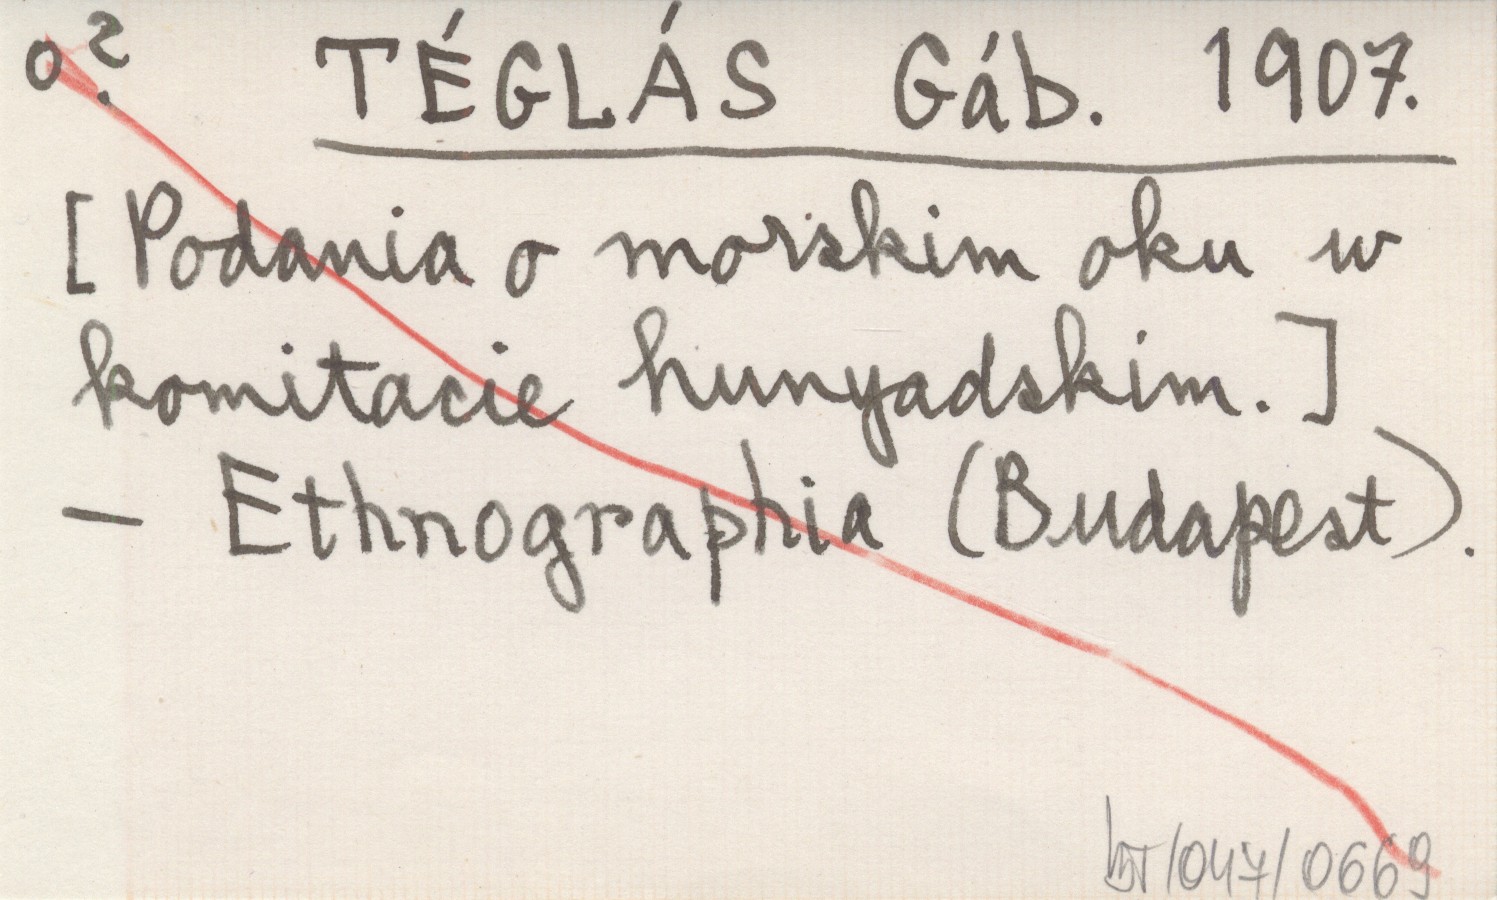 o?
TÉGLÁS Gáb. 1907.
[Podania o morskim oku w
komitacie hunyadskim.]
— Ethnographia (Budapest).
/047/0669